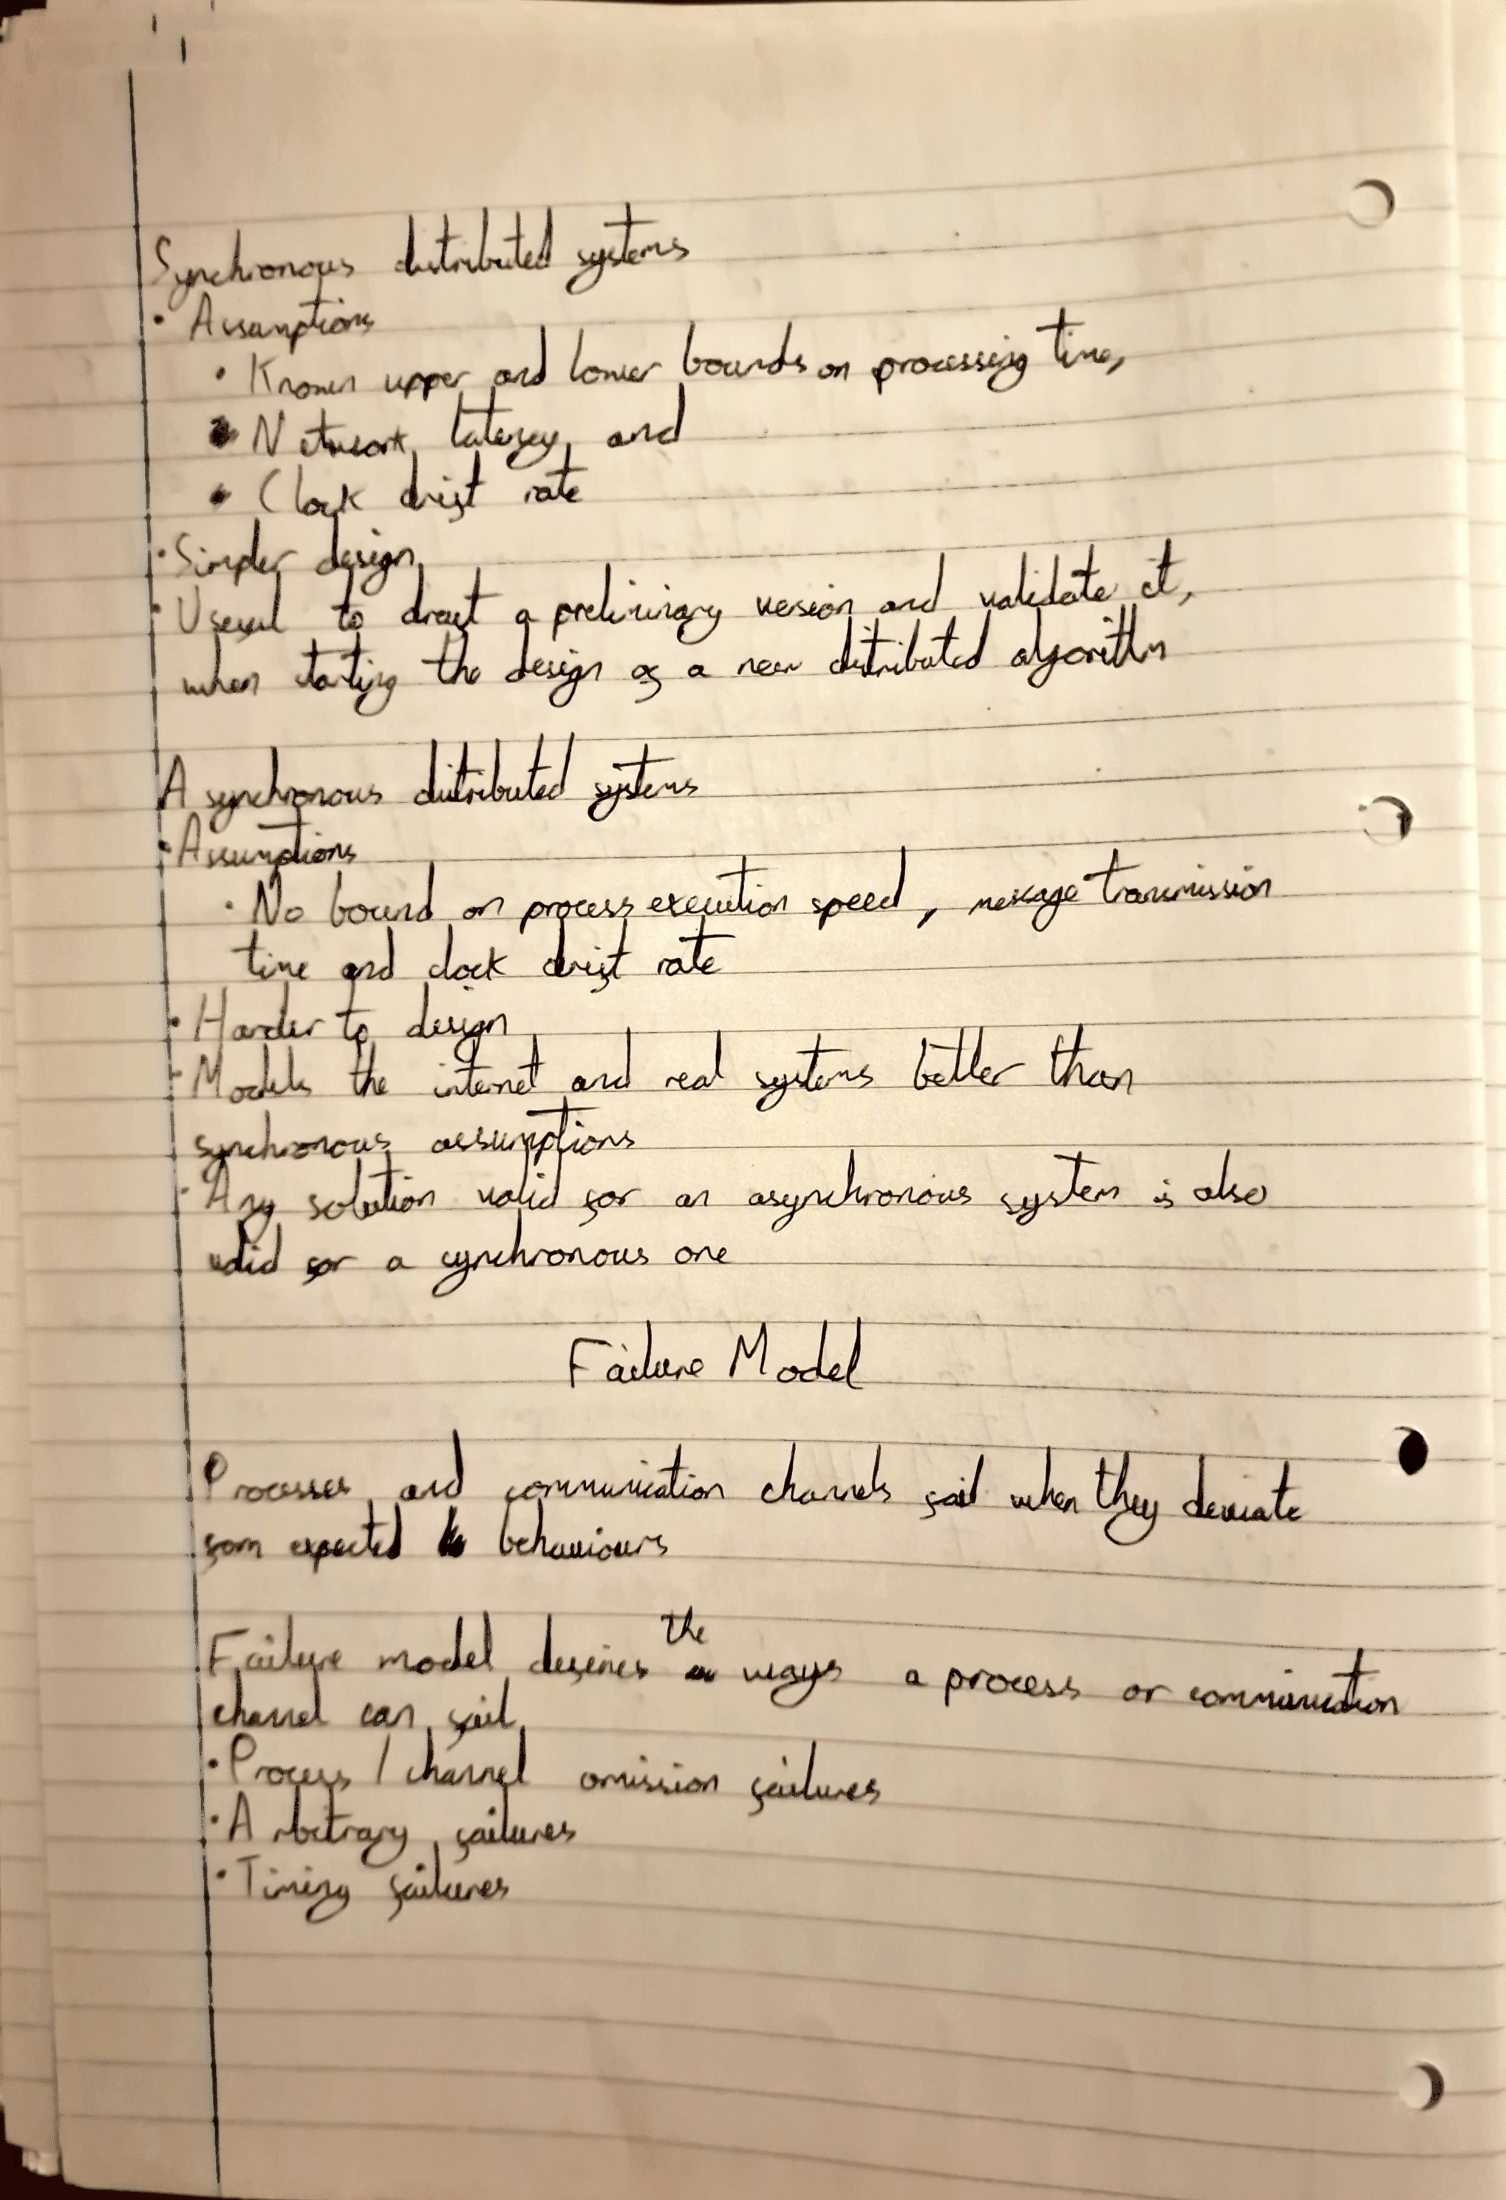 Synchronous distributed systems
• Assumptions
• Known upper and lower bounds on processing time,
• Network latency, and
• Clock drift rate
• Simpler design
• Useful to draft a preliminary version and validate it,
when starting the design of a new distributed algorithm
Asynchronous distributed systems
• Assumptions
• No bound on process execution speed, message transmission
time and clock drift rate
• Harder to design
• Models the internet and real systems better than
synchronous assumptions
• Any solution valid for an asynchronous system is also
valid for a synchronous one
Failure Model
Processes and communication channels fail when they deviate
fom expected behaviours
Failure model defines the ways a process or communication
channel can fail
• Process / channel omission failures
• Arbitrary failures
• Timing failures